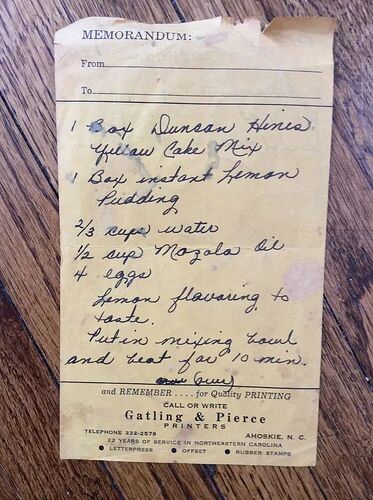 MEMORANDUM:
From
To
1 Box Duncan Hines
Yellow Cake Mix
1 Box instant Lemon
Pudding
2/3 cups water
1/2 cup Mazola Oil
4 eggs
Lemon flavoring to
taste.
Put in mixing bowl
and beat for 10 min.
(over)
and REMEMBER . . . . for Quality PRINTING
CALL OR WRITE
Gatling & Pierce
PRINTERS
TELEPHONE 332-2579 AHOSKIE, N. C.
22 YEARS OF SERVICE IN NORTHEASTERN CAROLINA
● LETTERPRESS ● OFFSET ● RUBBER STAMPS